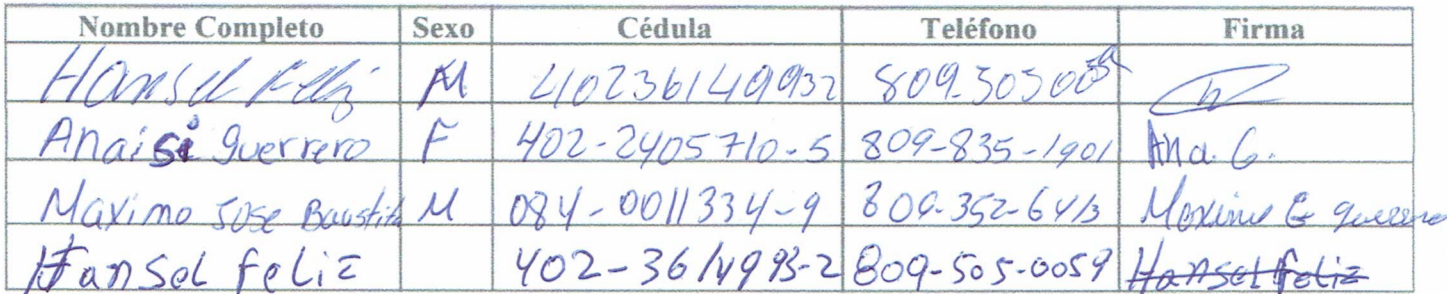 Nombre Completo Sexo Cédula Teléfono Firma
Hansel Feliz M 40236149932 8095050059
Anaisi Guerrero F 402-2405710-5 809-835-1901 Ana. G.
Maximo Jose Baustita M 084-0011334-9 809-352-6413 Maximo G guerrero
Hansel feliz 402-3614993-2 809-505-0059 Hansel feliz